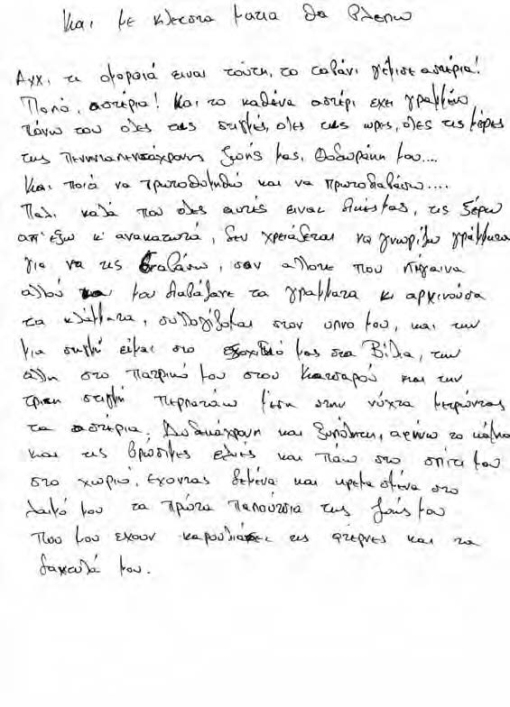 Και με κλειστα ματια θα βλεπω
Αχχ, τι ομορφιά ειναι τούτη, το ταβάνι γέμισε αστέρια!
Πολύ, αστέρια! Και το καθένα αστέρι εχει γραμμένο
πάνω του όλες τις στιγμές, όλες τις ωρες, όλες τις μέρες
της πενηνταπεντάχρονης ζωής μας, Θοδωράκη μου....
Και ποιά να πρωτοθυμηθώ και να πρωτοδιαβάσω....
Παλι καλά που ολες αυτές ειναι δικές μας, τις ξέρω
απ' έξω κ' ανακατωτά, δεν χρειάζεται να γνωρίζω γράμματα
για να τις διαβάσω, σαν αλλοτε που πήγαινα
αλλού και μου διαβάζανε τα γραμματα κι αρχινούσα
τα κλάμματα, συλλογίζομαι στον υπνο μου, και την
μια στιγμή είμαι στο εξοχικό μας στα Βίλια, την
άλλη στο πατρικό μου στου Κατσαρού και την
τριτη στιγμή περπατάω μέσα στην νύχτα μετρώντας
τα αστέρια. Δωδεκάχρονη και ξυπόλητη, αφήνω το
και τις βρώσιμες ελιές και παω στο σπίτι μου
στο χωριό, εχοντας δεμένα και κρεμασμένα στο
λαιμό μου τα πρώτα παπούτσια της ζωής μου
που μου εχουν καρουλιάσει τις φτέρνες και τα
δαχτυλά μου.